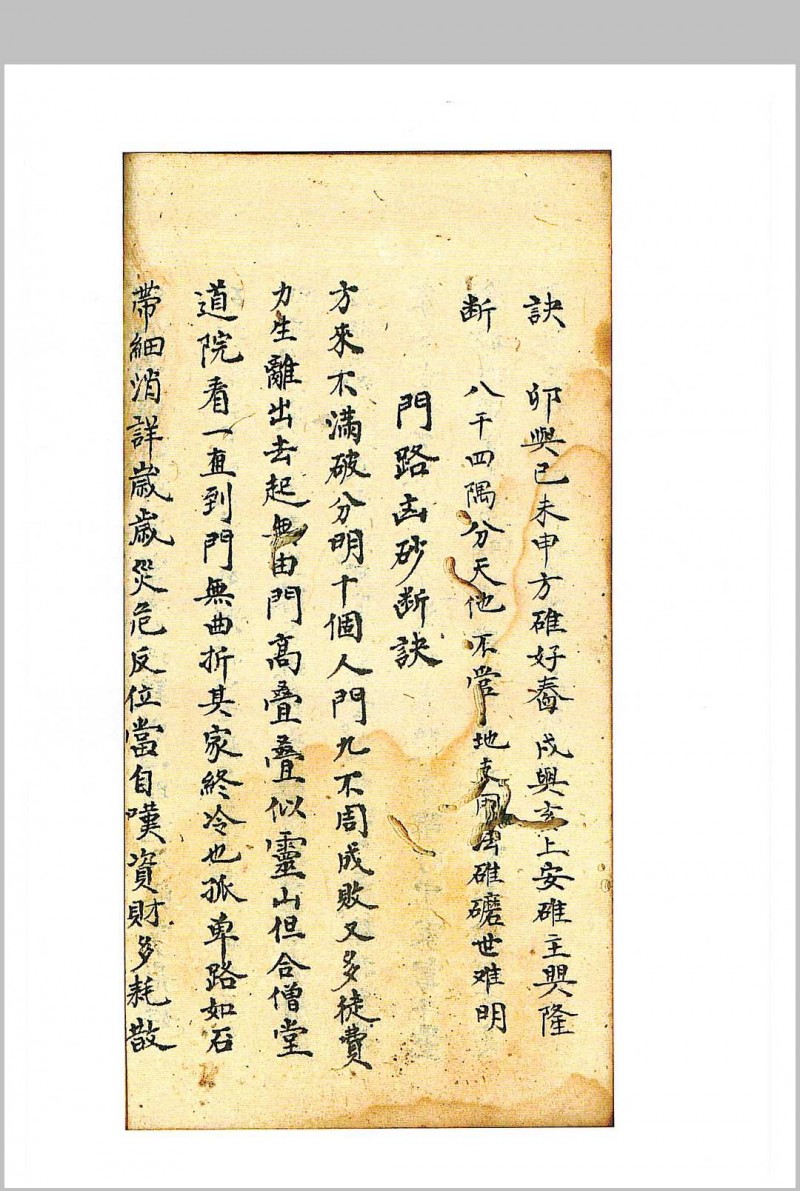 訣 卯與巳未申方碓好舂戌與亥上安碓主興隆
断 八干四隅分天他不當地支用碓磨世难明
門路凶砂断訣
方來不滿破分明十個人門九不周成敗又多徒費
力生離出去起無由門高疊疊似靈山但合僧堂
道院看一直到門無曲折其家終冷也孤单路如石
帶細消詳歳歳災危反位當自嘆資財多耗散